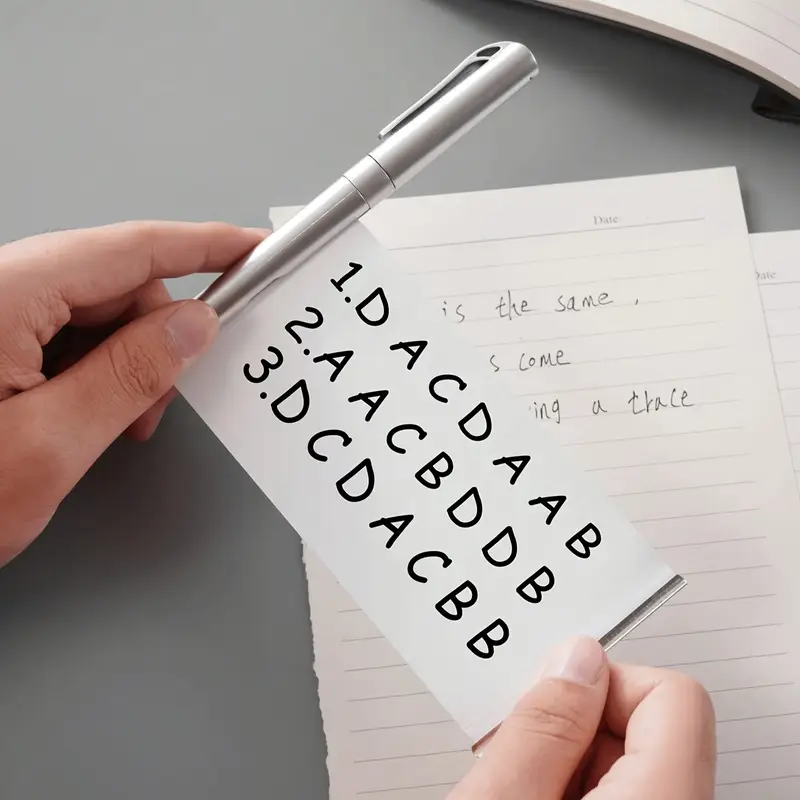 1.DACDAAB
2.AACBDDB
3.DCDACBB
Date
is the same,
s come
ing a trace
Date